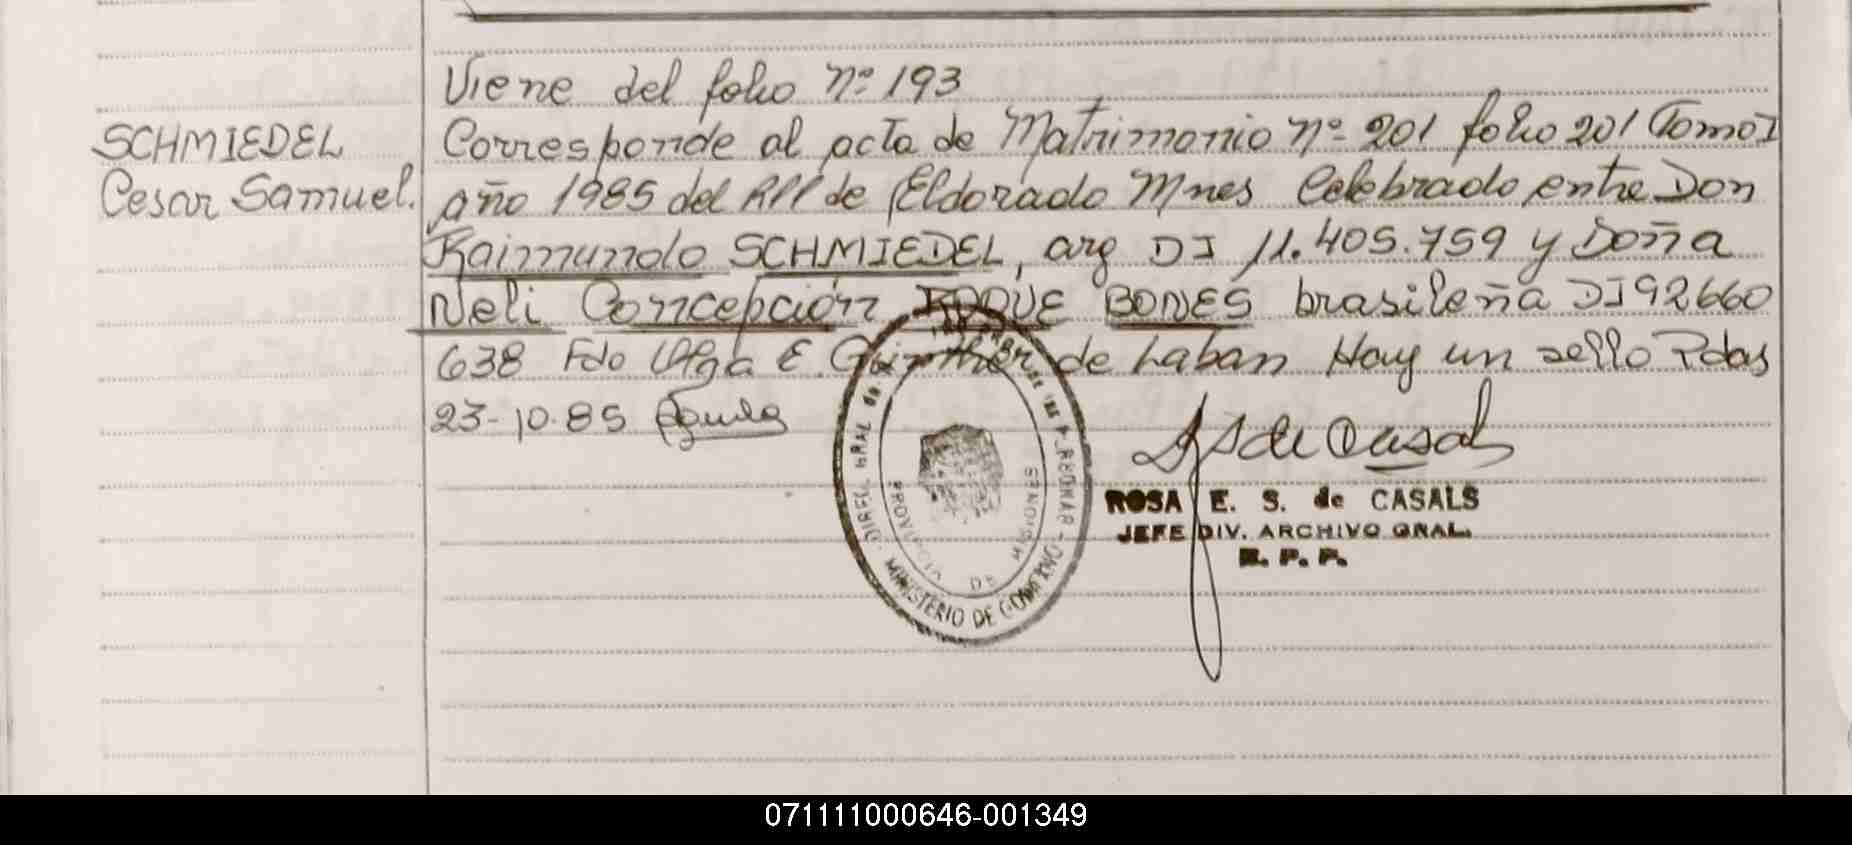 Viene del folio Nº 193
SCHMIEDEL
Cesar Samuel.
Corresponde al acta de Matrimonio nº 201 folio 201 Tomo I
año 1985 del RPP de Eldorado Mnes Celebrado entre Don
Raimundo SCHMIEDEL, arg DI 11.405.759 y Doña
Neli Concepción ROQUE BONES brasileña DI 92660
638 Fdo Olga E. Günther de Laban Hay un sello Pdas
23-10-85
ROSA E. S. de CASALS
JEFE DIV. ARCHIVO GRAL.
R. P. P.
MINISTERIO DE GOBIERNO
PROVINCIA DE MISIONES
071111000646-001349